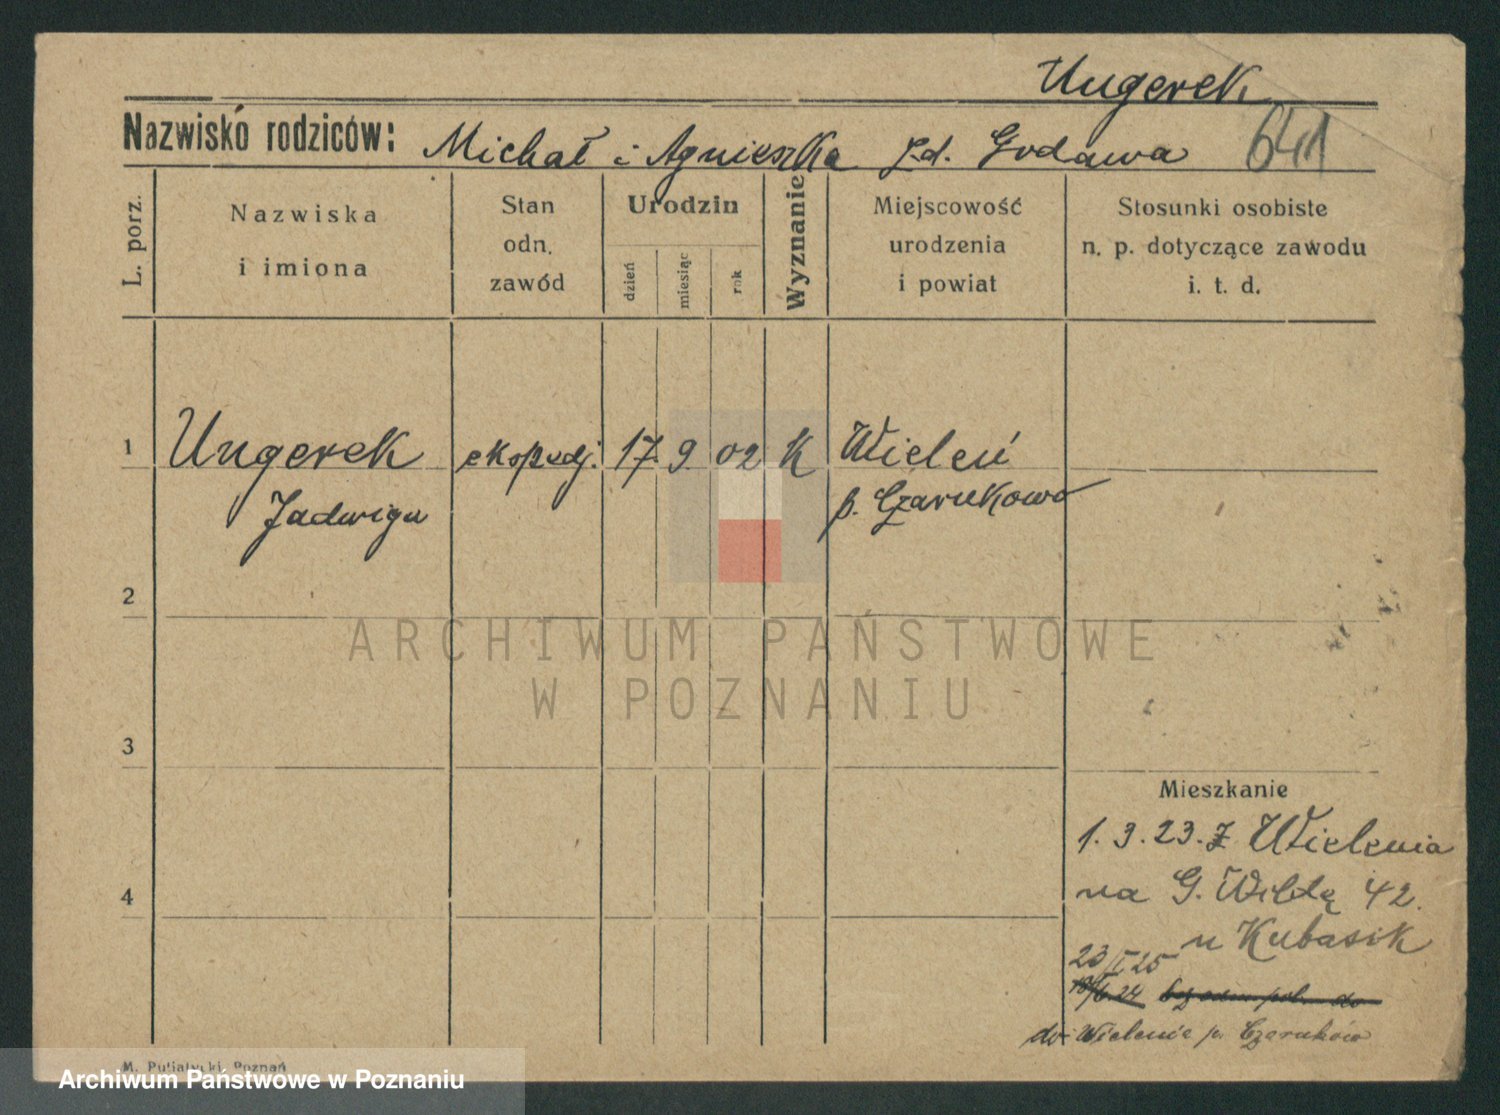 Ungerek
Nazwisko rodziców: Michał i Agnieszka Zd. Godawa 641
L. porz.
Nazwiska
i imiona
Stan
odn.
zawód
Urodzin
dzień
miesiąc
rok
Wyznanie
Miejscowość
urodzenia
i powiat
Stosunki osobiste
n. p. dotyczące zawodu
i. t. d.
1 Ungerek ekspedj. 17 9 02 K Wieleń
Jadwiga p. Czarnkowo
2
ARCHIWUM PAŃSTWOWE
W POZNANIU
3
Mieszkanie
1.3.23. Z Wielenia
4 na G. Wildę 42.
u Kubasik
23/I 25
18/6.24 bez odm. pol. do
do Wielenia p. Czarnków
M. Putiatycki, Poznań
Archiwum Państwowe w Poznaniu